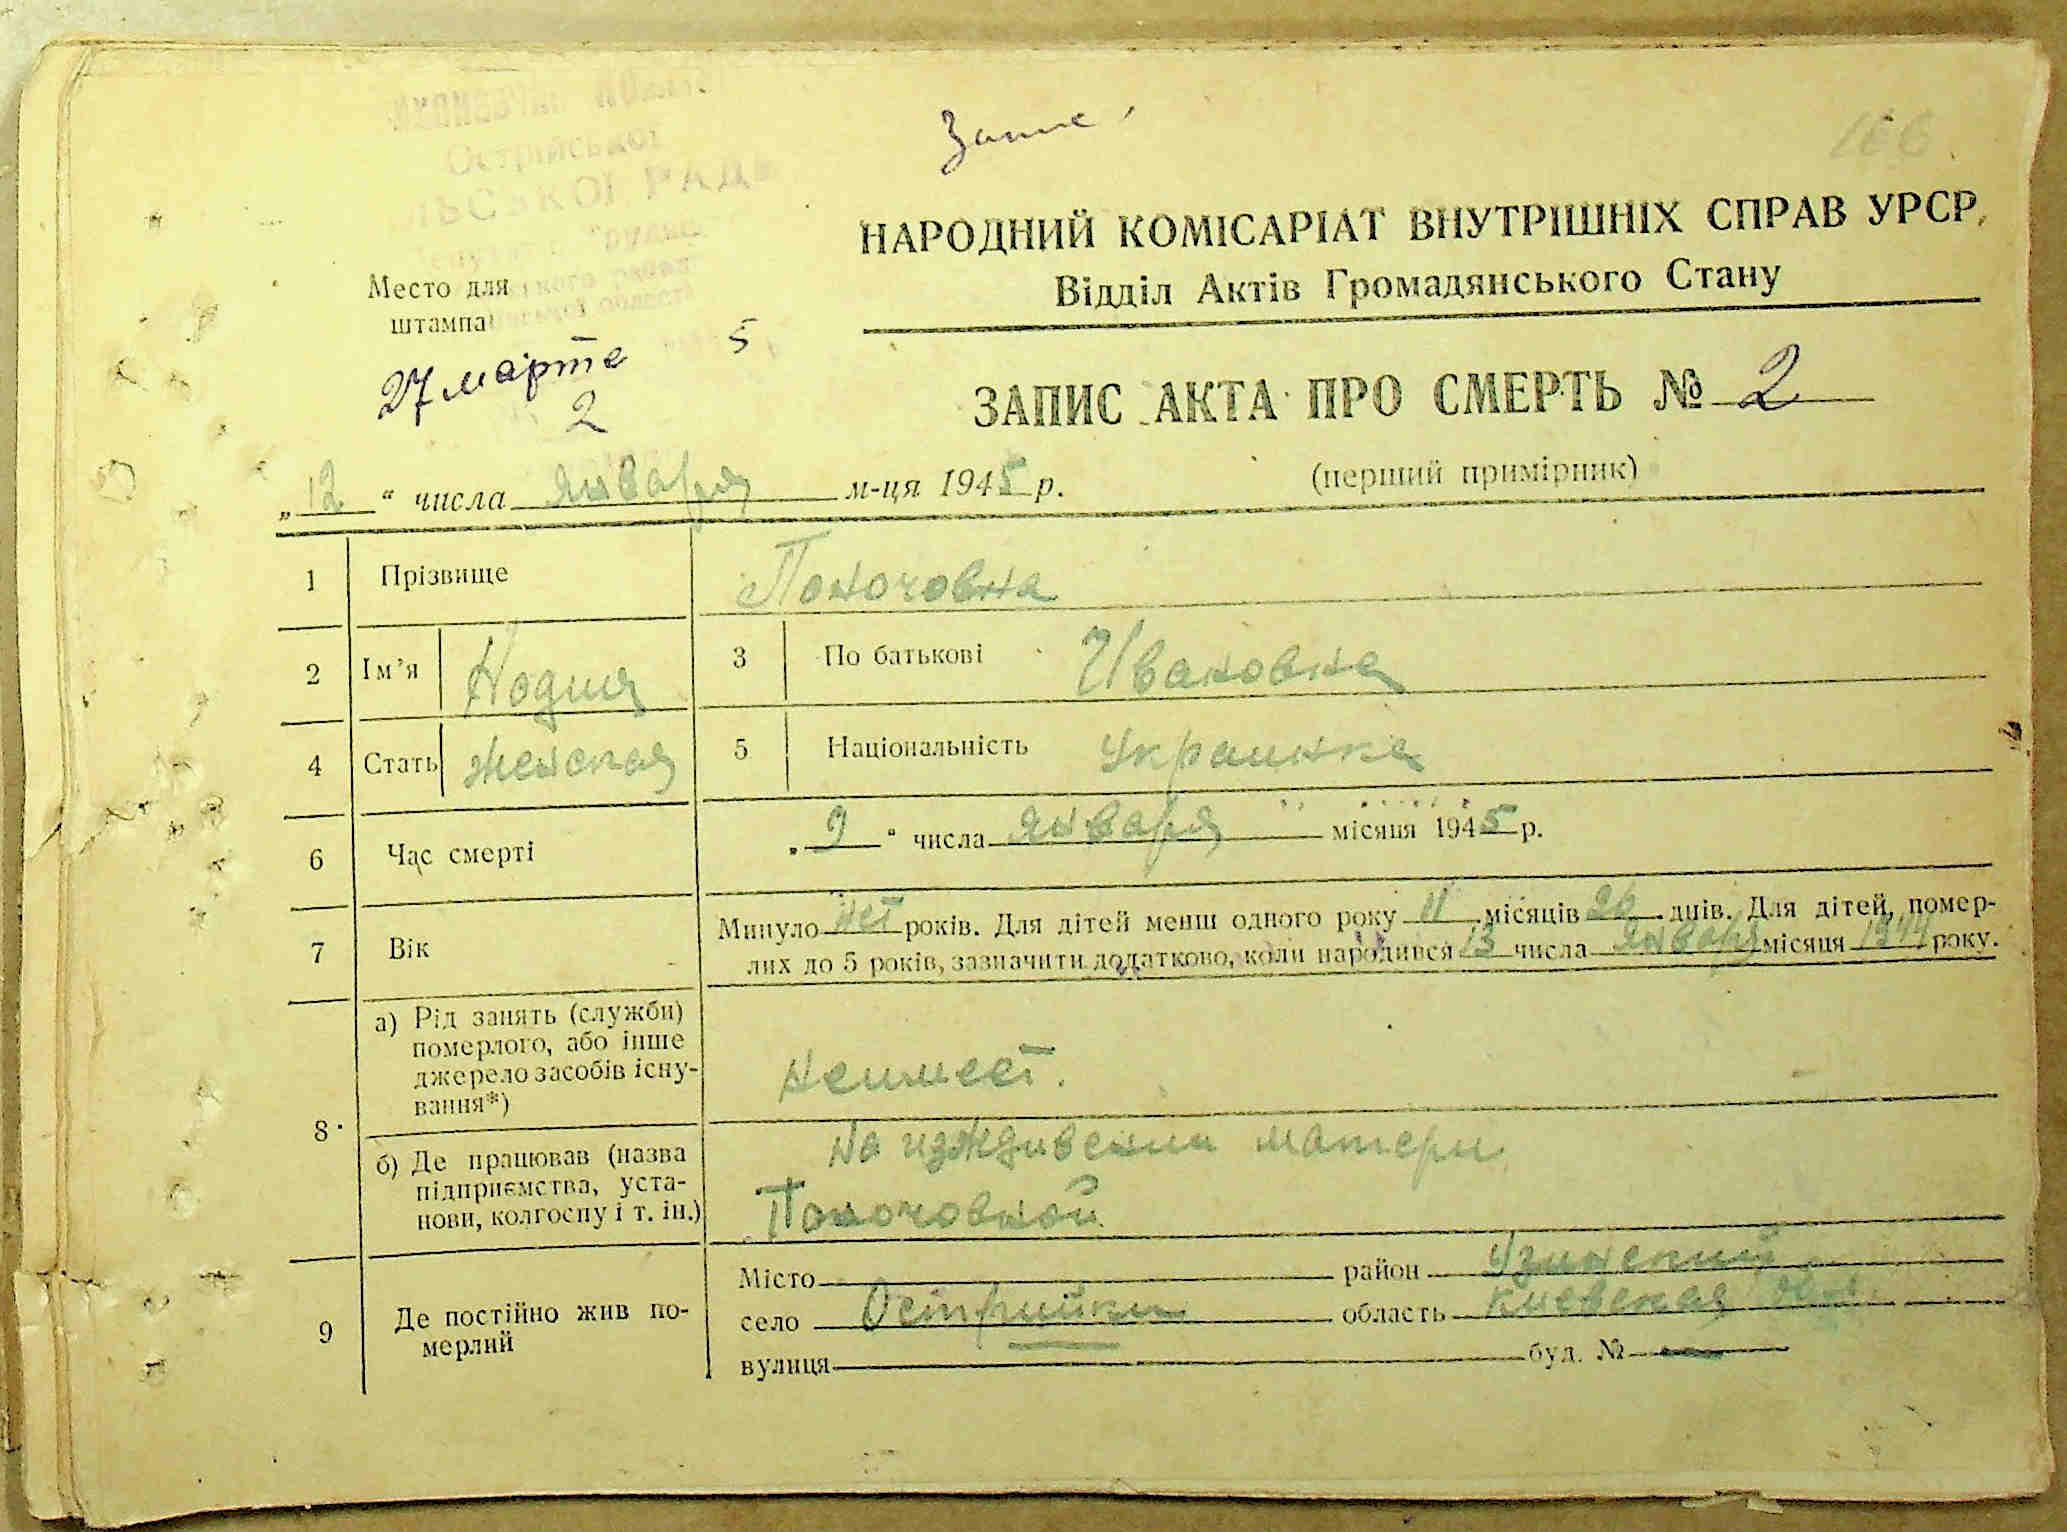 Острійської
Запис
НАРОДНИЙ КОМІСАРІАТ ВНУТРІШНІХ СПРАВ УРСР
Відділ Актів Громадянського Стану
Место для
штампа
27 марта 5
2
ЗАПИС АКТА ПРО СМЕРТЬ № 2
„12“ числа января м-ця 1945 р.
(перший примірник)
1 Прізвище Поночовна
2 Ім’я Нодия 3 По батькові Ивановна
4 Стать женская 5 Національність украинка
6 Час смерті „9“ числа января місяця 1945 р.
7 Вік Минуло нет років. Для дітей менш одного року 11 місяців 26 днів. Для дітей, помер-
лих до 5 років, зазначити додатково, коли народився 13 числа января місяця 1944 року.
8 а) Рід занять (служби)
померлого, або інше
джерело засобів існу-
вання*)
неимеет.
б) Де працював (назва
підприємства, уста-
нови, колгоспу і т. ін.)
на иждивении матери
Поночовной
9 Де постійно жив по-
мерлий
Місто район Узинский
село Острийки область Киевская обл.
вулиця буд. №